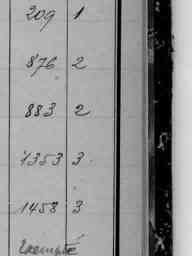 209 1
876 2
883 2
1353 3
1458 3
Exempté